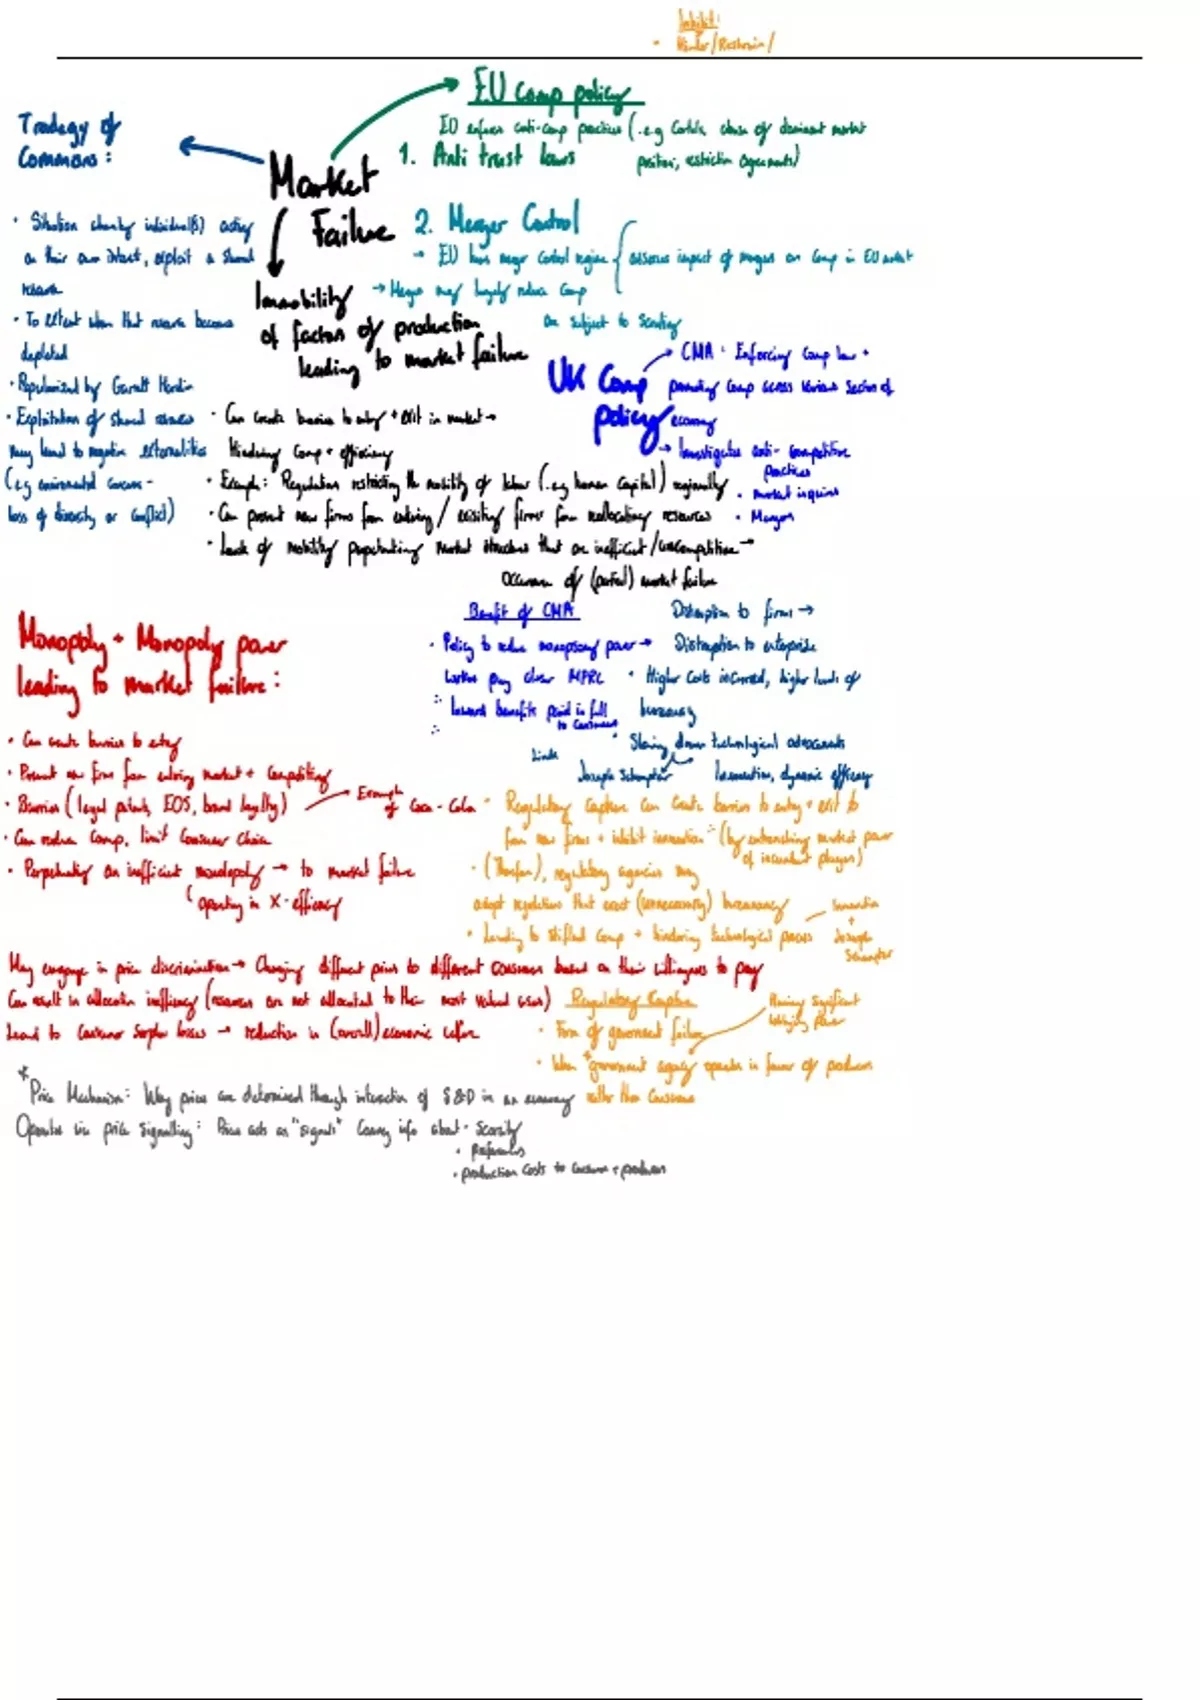 Inhibit:
• Hinder/Restrain/
EU Comp policy
EU enforces anti-comp practices (.e.g Cartels, abuse of dominant market
position, restriction agreements)
1. Anti trust laws
2. Merger Control
→ EU has merger control regime
assesses impact of mergers on Comp in EU market
→ Mergers may largely reduce Comp
are subject to scrutiny
Tradegy of
Commons:
• Situation whereby individual(s) acting
on their own interest, exploit a shared
resource
• To extent when that resource becomes
depleted
• Popularized by Garrett Hardin
• Exploitation of shared resources
may lead to negative externalities
(e.g environmental concerns -
loss of diversity or conflict)
Market
Failure
Immobility
of factors of production
leading to market failure
• Can create barriers to entry + exit in market →
Hindering Comp + efficiency
• Example: Regulation restricting the mobility of labour (.e.g human capital) regionally
• Can prevent new firms from entering / existing firms from reallocating resources
• Lack of mobility perpetuating market structures that are inefficient/uncompetitive →
Occurrence of (partial) market failure
UK Comp
policy
→ CMA: Enforcing Comp law +
promoting Comp across various sectors of
economy
→ Investigates anti-competitive
practices
• market inquiries
• Mergers
Benefit of CMA
• Policy to reduce monopsony power →
Workers pay closer MPRC
∴ Inward benefits paid in full
to Consumers
∴
Disruption to firms →
Disruption to enterprise
• Higher Costs incurred, higher levels of
bureaucracy
• Slowing down technological advancements
Links
Joseph Schumpter
Innovation, dynamic efficiency
Monopoly + Monopoly power
leading to market failure:
• Can create barriers to entry
• Prevent new firms from entering market + Competiting
• Barriers (legal patents, EOS, brand loyalty)
Example
of Coca-Cola
• Can reduce Comp, limit Consumer Choice
• Perpetuating an inefficient monolopoly → to market failure
(operating in X-efficiency
May engage in price discrimination → Charging different prices to different consumers based on their willingness to pay
Can result in allocative inefficiency (resources are not allocated to their most valued uses)
Lead to Consumer Surplus losses → reduction in (overall) economic welfare
• Regulatory Capture can Create barriers to entry + exit to
from new firms + inhibit innovation ∵ (by entrenching market power
of incumbent players)
• (Therefore), regulatory agencies may
adopt regulations that exert (unnecessary) bureaucracy
• Leading to stifled Comp + hindering technological process
Innovation
+
Joseph
Schumpter
Regulatory Capture
• Form of government failure
• When government agency operates in favour of producers
rather than Consumers
Having significant
lobbying power
*
Price Mechanism: Way prices are determined through interaction of S&D in an economy
Operates via price signalling: Price acts as "signals" Convey info about • Scarcity
• Preferences
• production Costs to Consumers + producers